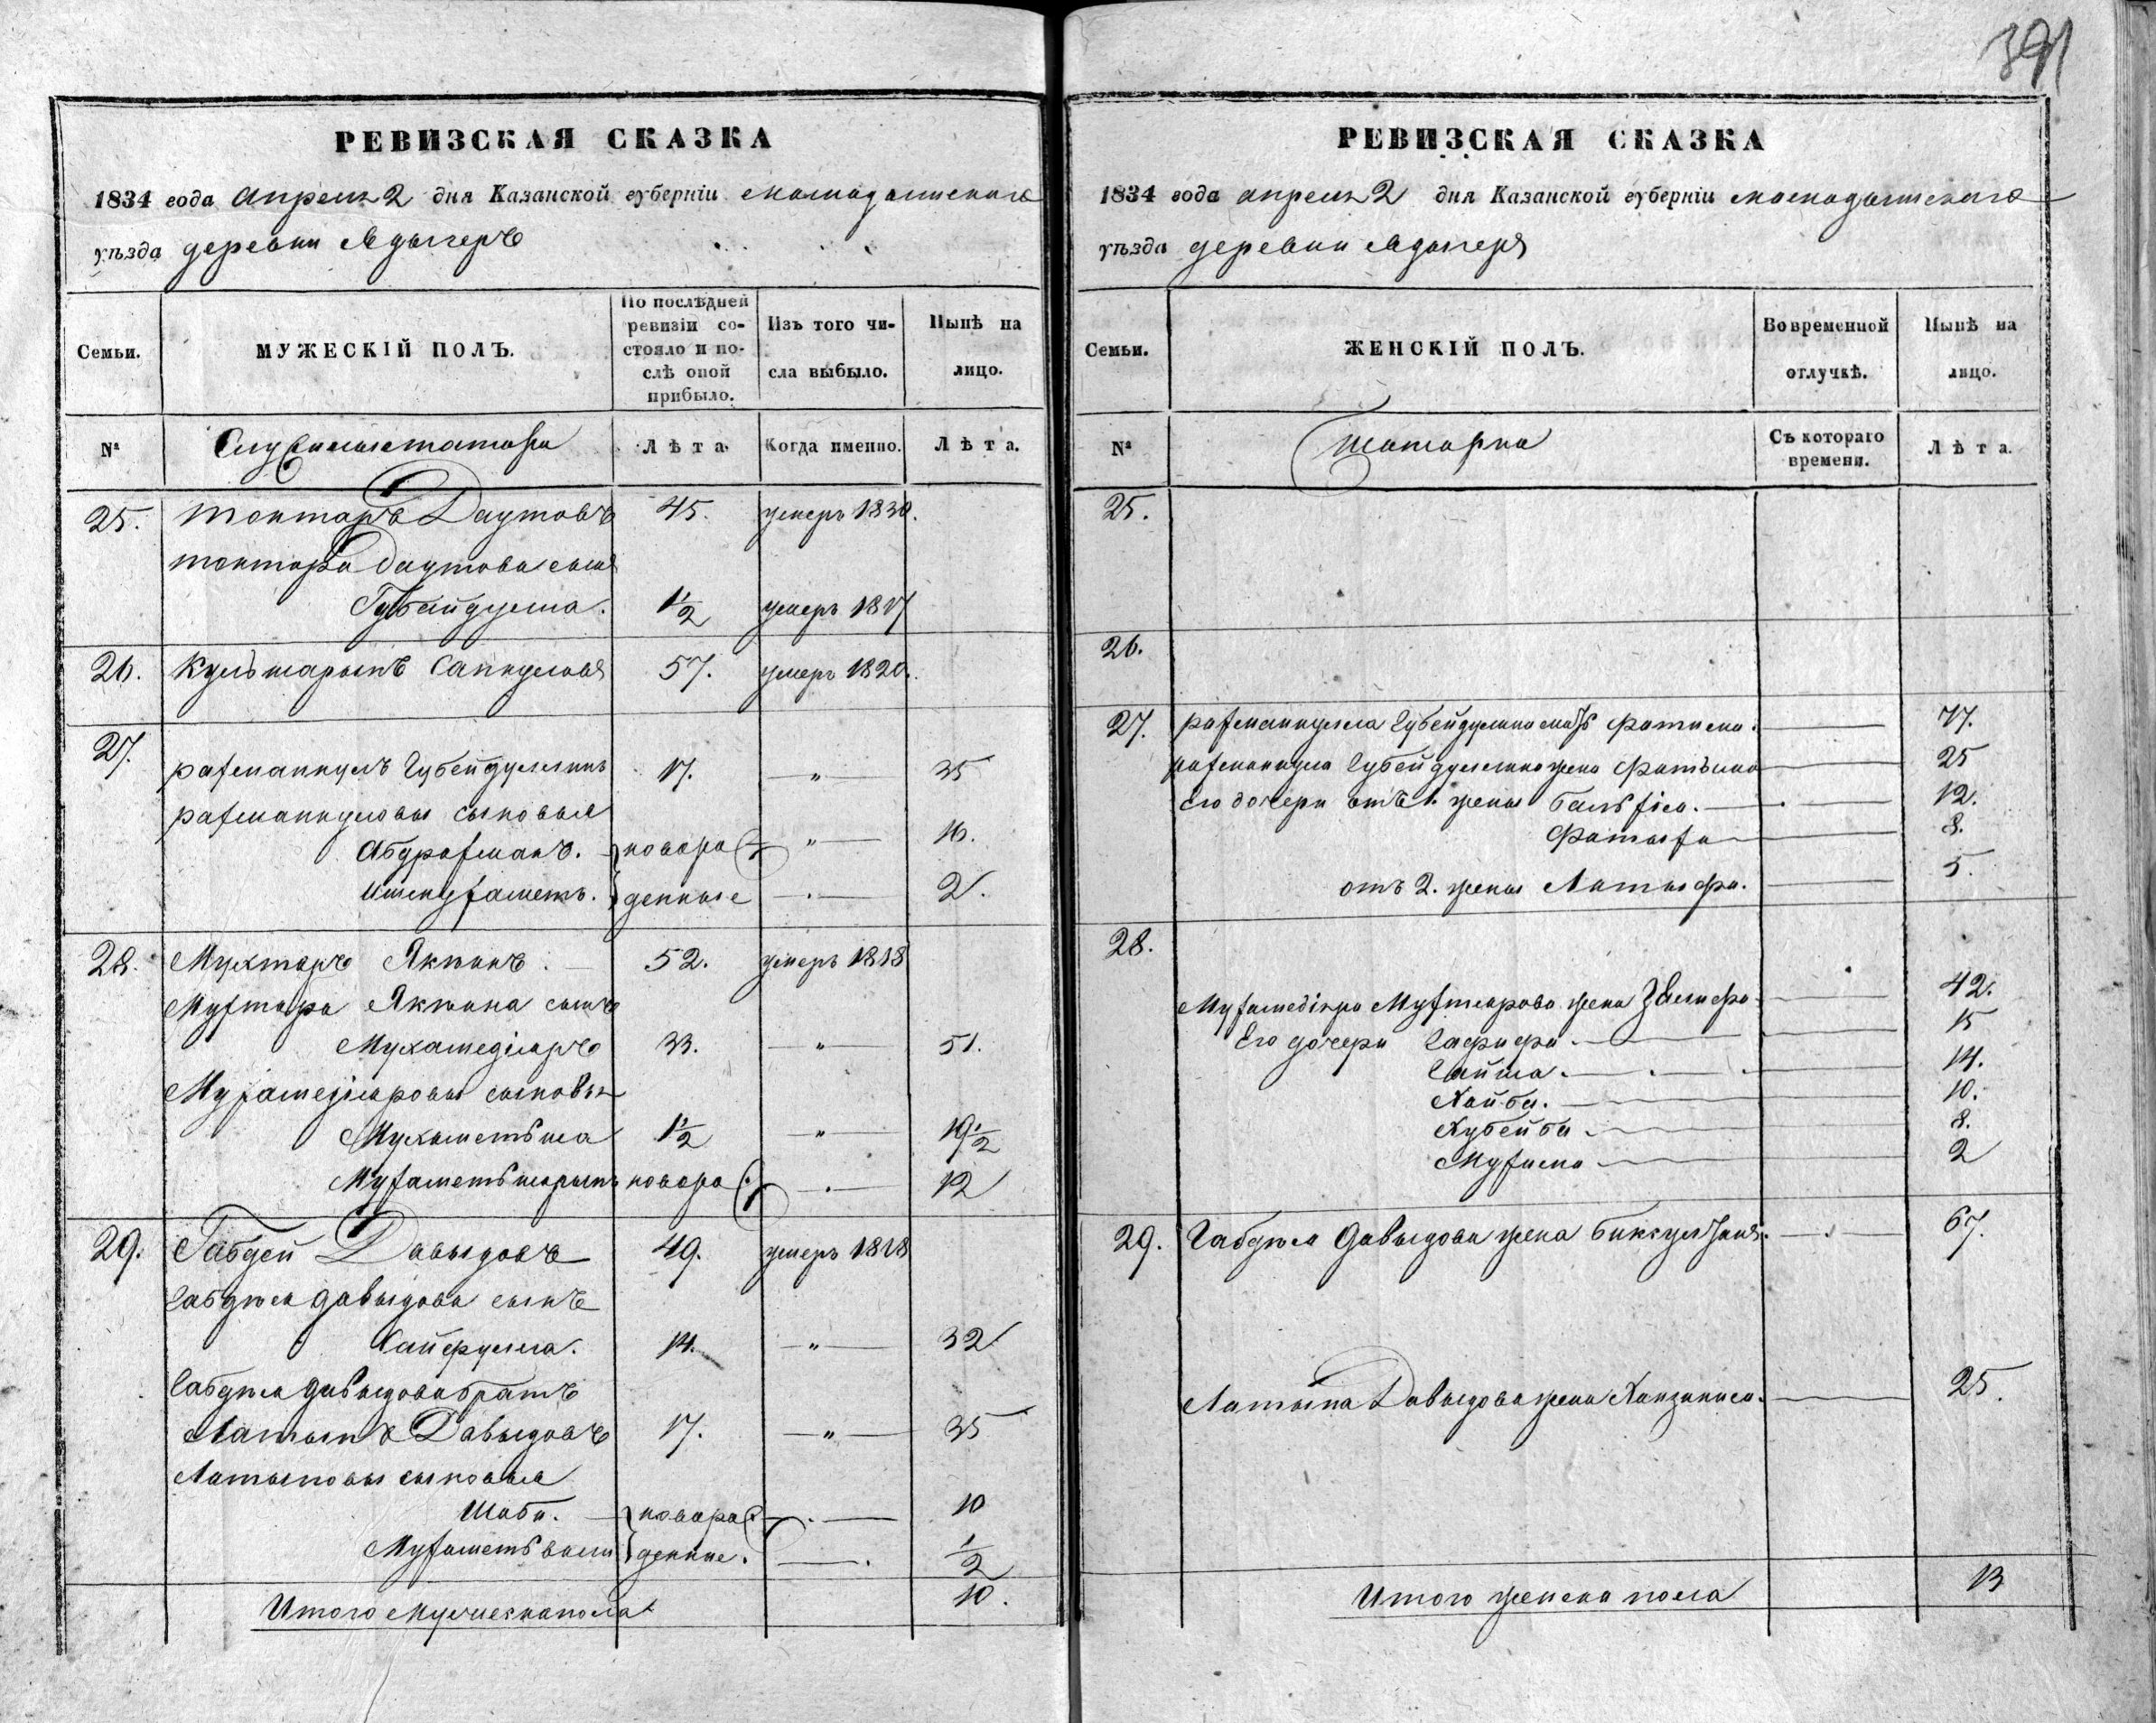 391
РЕВИЗСКАЯ СКАЗКА
1834 года апреля 2 дня Казанской губерніи мамадышскаго
уѣзда деревни Адыгеръ
Семьи.
МУЖЕСКІЙ ПОЛЪ.
По послѣдней ревизіи состояло и послѣ оной прибыло.
Изъ того числа выбыло.
Нынѣ на лицо.
№
Служилыя татары
Лѣта
Когда именно.
Лѣта.
25. Токтаръ Даутовъ 45. умеръ 1830.
токтара даутова сынъ
Губайдулла. 1 1/2 умеръ 1817
26. Кульшарыпъ Сапкуловъ 57. умеръ 1820.
27. рахманкулъ Губейдуллинъ 17. — " — 35
рахманкуловы сыновья
Абдрахманъ. новоро — " — 16.
Ишмухаметъ. жденные — . — 2.
28. Мухтаръ Якупинъ 52. умеръ 1818
Мухтара сынъ
Мухамедіаръ 33. — " — 51.
Мухамедіаровы сыновья
Мухаметьша 1 1/2 — " — 19 1/2
Мухаметьшарыпъ новоро — . — 12
29. Габдей Давыдовъ 49. умеръ 1818
Габдѣя давыдова сынъ
Хайрулла. 14. — " — 32
Габдѣя давыдова братъ
Латыпъ Давыдовъ 17. — " — 35
Латыповы сыновья
Шаби. новоро — . — 10
Мухаметьвали жденные. — . 1/2
Итого мужеска пола 10.
РЕВИЗСКАЯ СКАЗКА
1834 года апреля 2 дня Казанской губерніи мамадышскаго
уѣзда деревни Адыгеръ
Семьи.
ЖЕНСКІЙ ПОЛЪ.
Во временной отлучкѣ.
Нынѣ на лицо.
№
татарки
Съ котораго времени.
Лѣта.
25.
26.
27. рахманкула Губейдуллина мать Фатима. — 77.
рахманкула Губейдуллина жена Фатыма — 25
Его дочери отъ 1. жены — 12.
Фатыха — 8.
отъ 2. жены Латыфа. — 5.
28.
Мухамедіяра Мухтарова жена — 42.
Его дочери Гафифа. — 15
Гайша. — 14.
Хайби. — 10.
Хубейби — 8.
— 2
29. Габдѣя Давыдова жена — 67.
Латыпа Давыдова жена Ханзаниса. — 25.
Итого женска пола 13